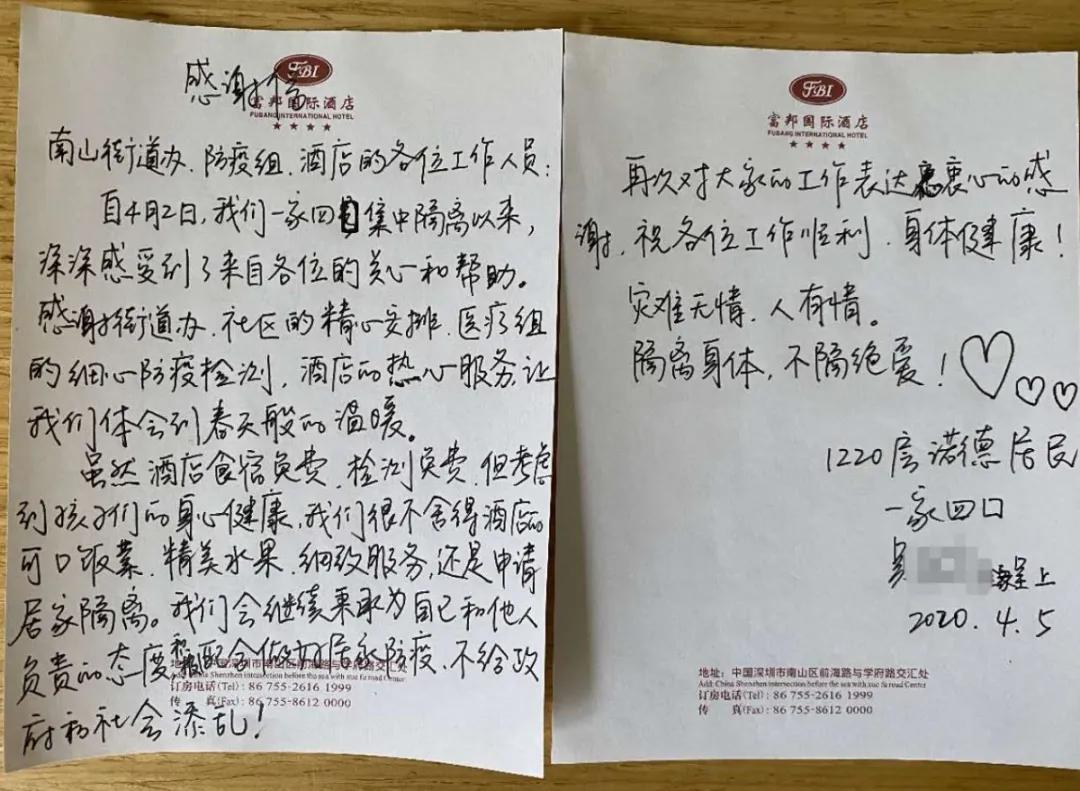 FBI
感谢信
富邦国际酒店
FUBANG INTERNATIONAL HOTEL
★★★★
南山街道办、防疫组、酒店的各位工作人员:
自4月2日,我们一家四口集中隔离以来,
深深感受到了来自各位的关心和帮助。
感谢街道办、社区的精心安排,医疗组
的细心防疫检测,酒店的热心服务,让
我们体会到春天般的温暖。
虽然酒店食宿免费、检测免费,但考虑
到孩子们的身心健康,我们很不舍得酒店的
可口饭菜、精美水果、细致服务,还是申请
居家隔离。我们会继续秉承为自己和他人
负责的态度,积极配合做好居家防疫,不给政
府和社会添乱!
地址:中国深圳市南山区前海路与学府路交汇处
订房电话(Tel): 86 755-2616 1999
传 真(Fax): 86 755-8612 0000
FBI
富邦国际酒店
FUBANG INTERNATIONAL HOTEL
★★★★
再次对大家的工作表达衷心的感
谢,祝各位工作顺利、身体健康!
灾难无情,人有情。
隔离身体,不隔绝爱!
1220房诺德居民
一家四口
呈上
2020.4.5
地址:中国深圳市南山区前海路与学府路交汇处
Add: China Shenzhen intersection before the sea with xue fu road Center
订房电话(Tel): 86 755-2616 1999
传 真(Fax): 86 755-8612 0000